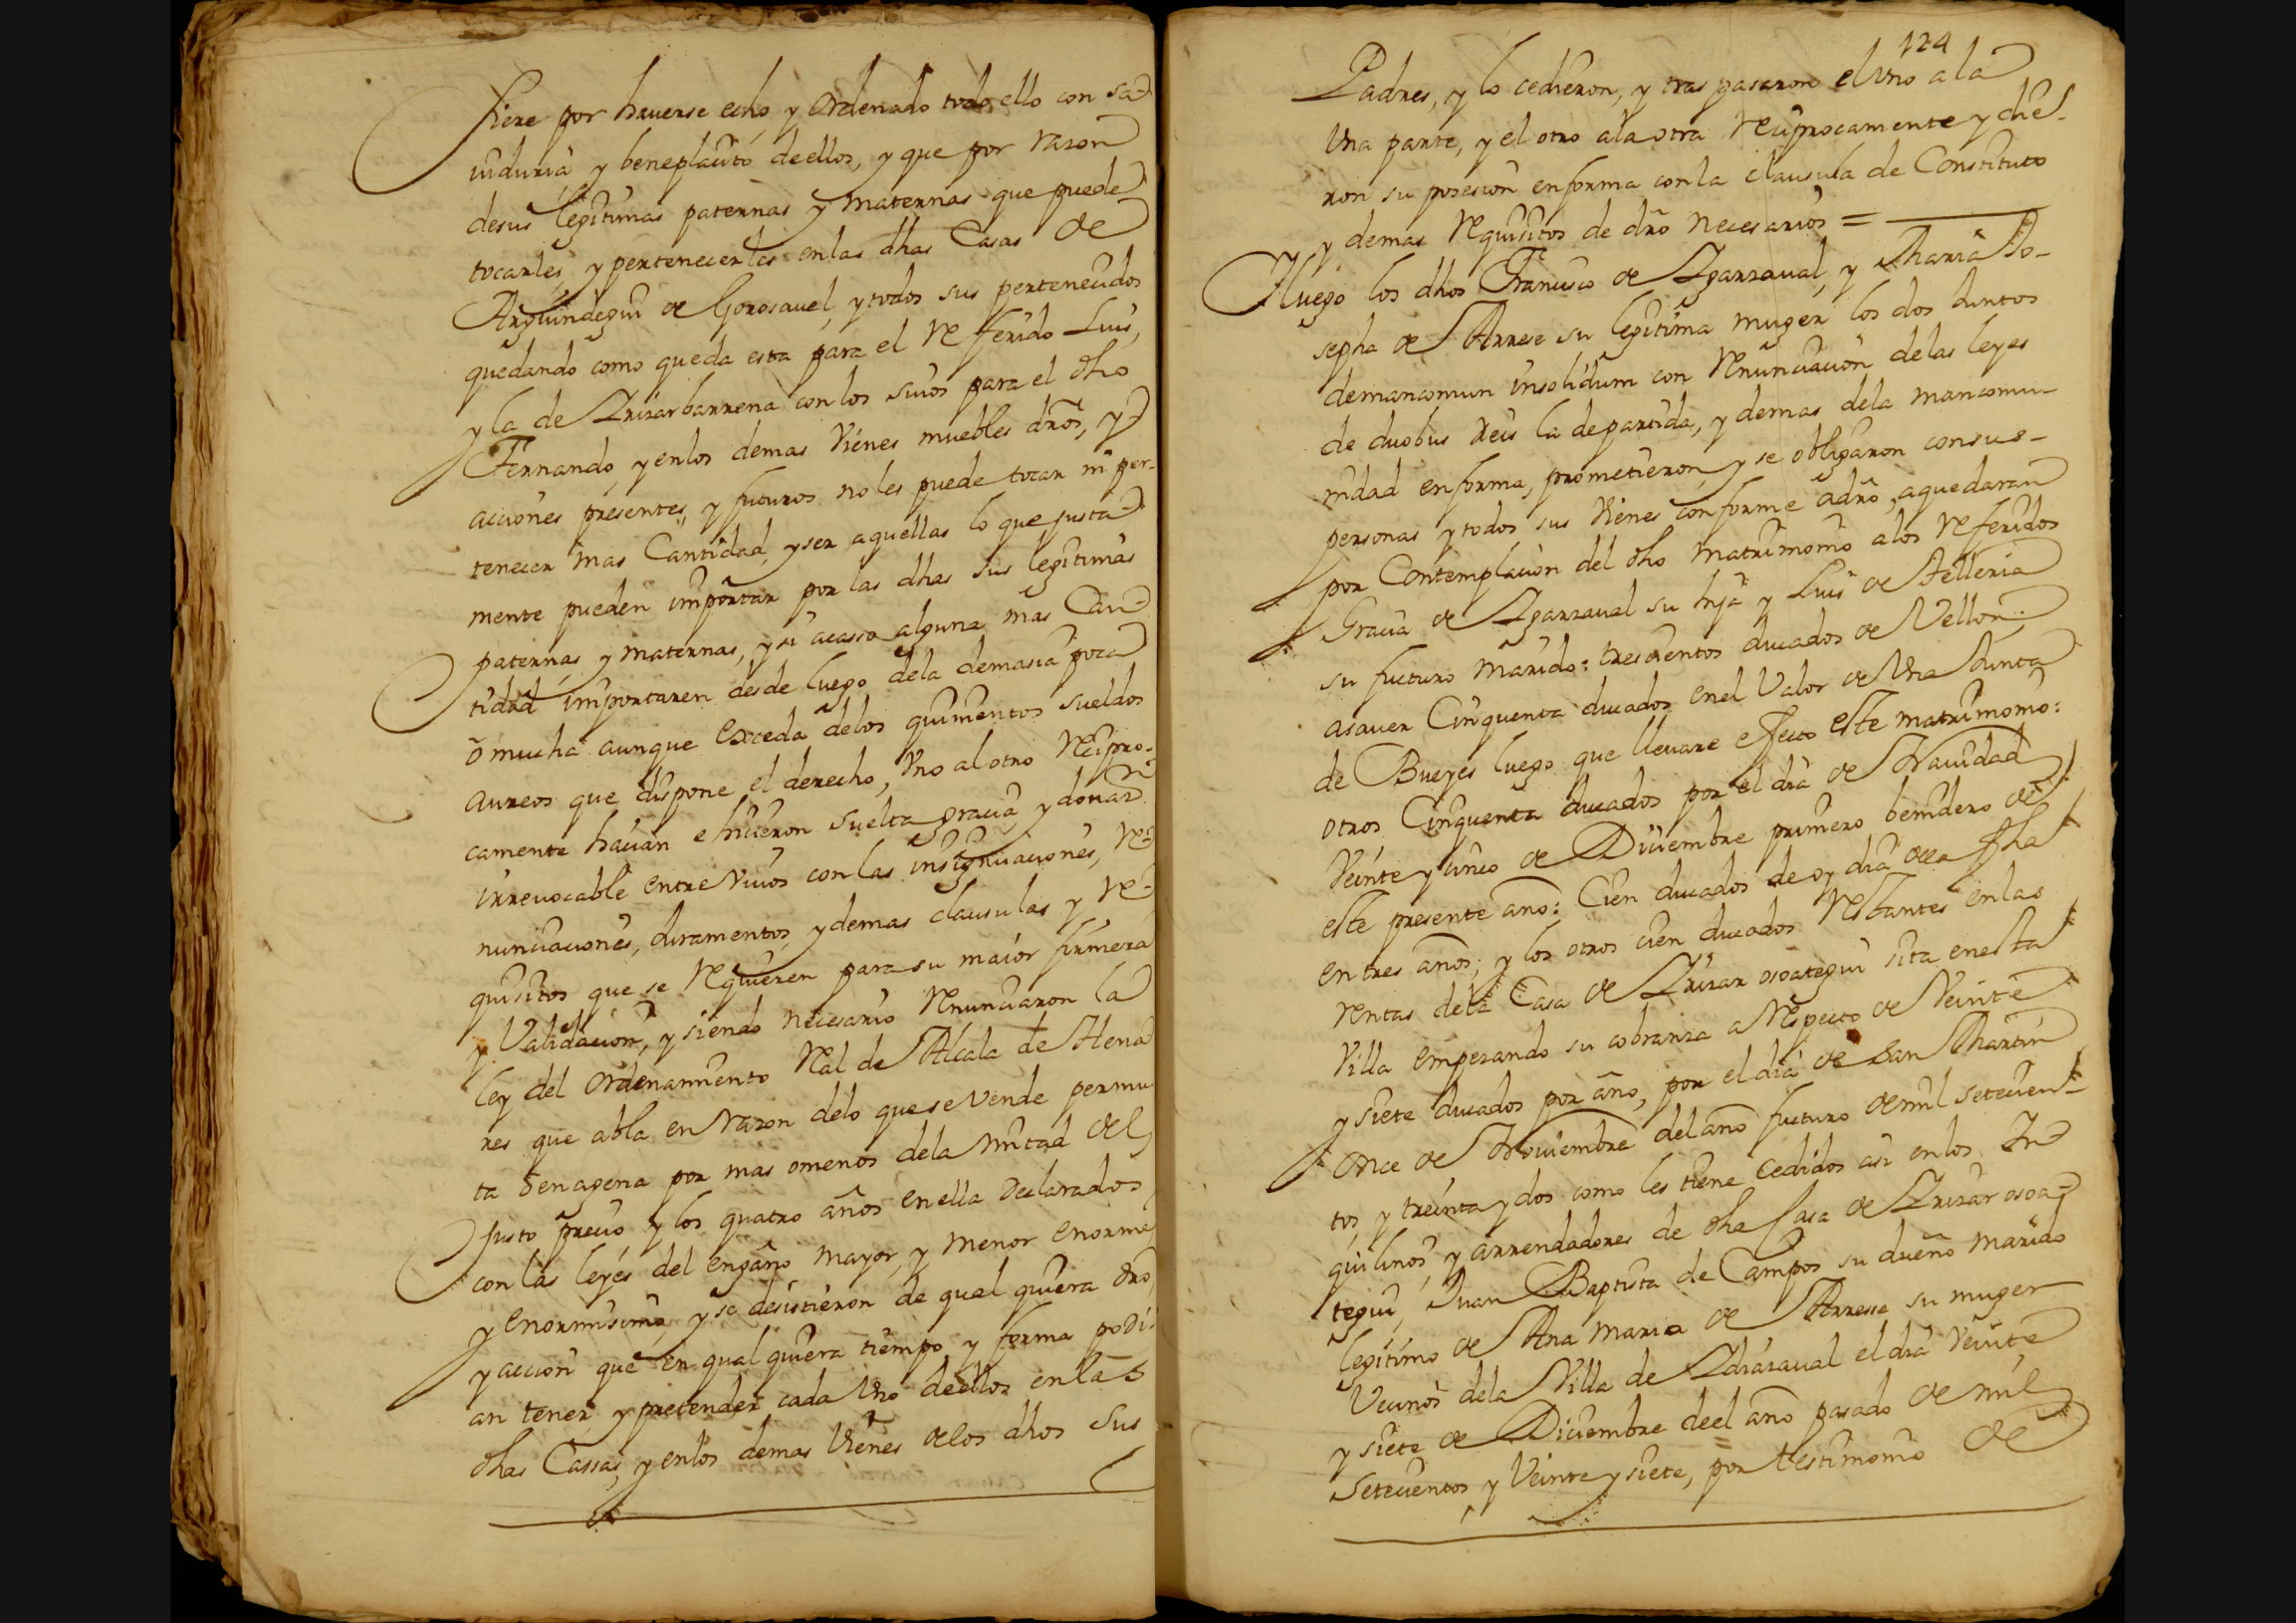 fiere por haverse echo y ordenado todo ello con sa
viduria y beneplacito de ellos, y que por razon
de sus legitimas paternas y maternas que puede
tocarles, y pertenecerles en las dhas Casas de
Arguindegui de Gorosavel, y todos sus pertenecidos
quedando como queda esta para el referido Luis,
y la de Yrizarbarrena con los suios para el dho
Fernando, y en los demas vienes muebles dros, y
acciones presentes, y futuros no les puede tocar ni per-
tenecer mas Cantidad, y ser aquellas lo que justa
mente pueden importar por las dhas sus legitimas
paternas, y maternas, y si acasso alguna mas Can
tidad importaren desde luego de la demasia poca
o mucha aunque exceda de los quinientos sueldos
aureos que dispone el derecho, Vno al otro recipro-
camente hacian e hicieron suelta gracia y donazn
irrevocable entre vivos con las insignuaciones, re
nunciaciones, juramentos, y demas clausulas y re
quisitos que se requieren para su maior firmeza
y Validacion, y siendo necesario renunciaron la
ley del ordenamiento Real de Alcala de Hena
res que abla en razon de lo que se vende permu
ta o enagena por mas o menos de la mitad del
justo precio y los quatro años en ella declarados
con las leyes del engaño mayor, y menor enorme
y enormisima, y se desistieron de qual quiera dro,
y accion que en qual quiera tiempo y forma podi-
an tener, y pretender cada Vno de ellos en las
dhas Cassas, y en los demas vienes de los dhos sus
124
Padres, y lo cedieron, y traspasaron el Vno a la
Vna parte, y el otro a la otra reciprocamente y die-
ron su posesion en forma con la clausula de Constituto
y demas requisitos de dro necesarios =
Y luego los dhos Francisco de Ygarzaval, y Maria Jo-
sepha de Arrese su legitima muger los dos juntos
de mancomun insolidum con renunciacion de las leyes
de duobus reis la de partida, y demas de la mancomu-
nidad en forma, prometieron, y se obligaron con sus
personas y todos sus vienes conforme a dro, a que daran
por Contemplacion del dho matrimonio a los referidos
Gracia de Ygarzaval su hija y Luis de Telleria
su futuro marido: trescientos ducados de Vellon:
a saver Cinquenta ducados en el Valor de Vna Junta
de Bueyes luego que llevare efecto este matrimonio:
otros Cinquenta ducados por el dia de Navidad
Veinte y cinco de Diciembre primero benidero de
este presente año: Cien ducados de oy dia de la fha
en tres años; y los otros cien ducados restantes en las
rentas de la Casa de Yrizar osoategui sita en esta
Villa empezando su cobranza a respecto de Veinte
y siete ducados por año, por el dia de San Martin
once de Noviembre del año futuro de mil setecien-
tos, y treinta y dos como les tiene cedidos asi en los Yn
quilinos, y arrendadores de dha Casa de Yrizar osoa-
tegui, Juan Baptista de Campos su dueño marido
legitimo de Ana Maria de Arrese su muger
Vecinos de la Villa de Ydiazaval el dia Veinte
y siete de Diciembre de el año pasado de mil
Setecientos, y Veinte y siete, por testimonio de